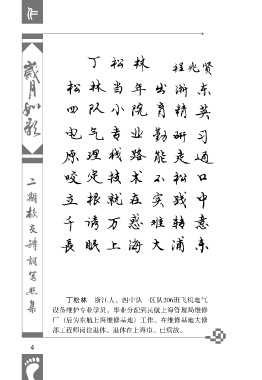 歲月如歌
丁松林 程兆贤
松林当年出浙东
四队小院育精英
电气专业勤研习
原理线路能走通
咬定技术不松口
立根就在实践中
千诱万惑难转意
長眠上海大浦东
丁松林 浙江人，四中队一区队206班飞机电气
设备维护专业学员，毕业分配到民航上海管理局维修
厂（后为东航上海维修基地）工作。在维修基地大修
部工程师岗位退休。退休在上海市。已病故。
4